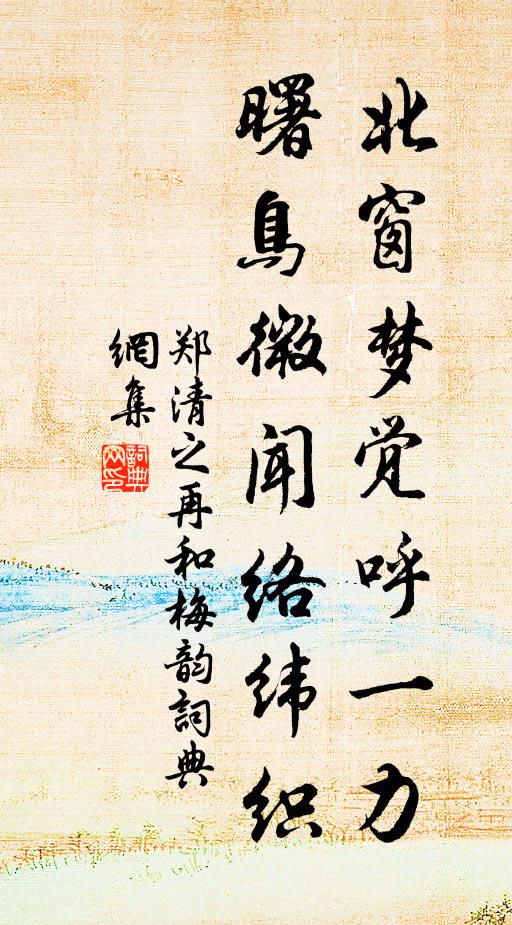 北窗梦觉呼一力
曙鳥微闻络纬织
郑清之再和梅韵詞典
網集
詞典
网印